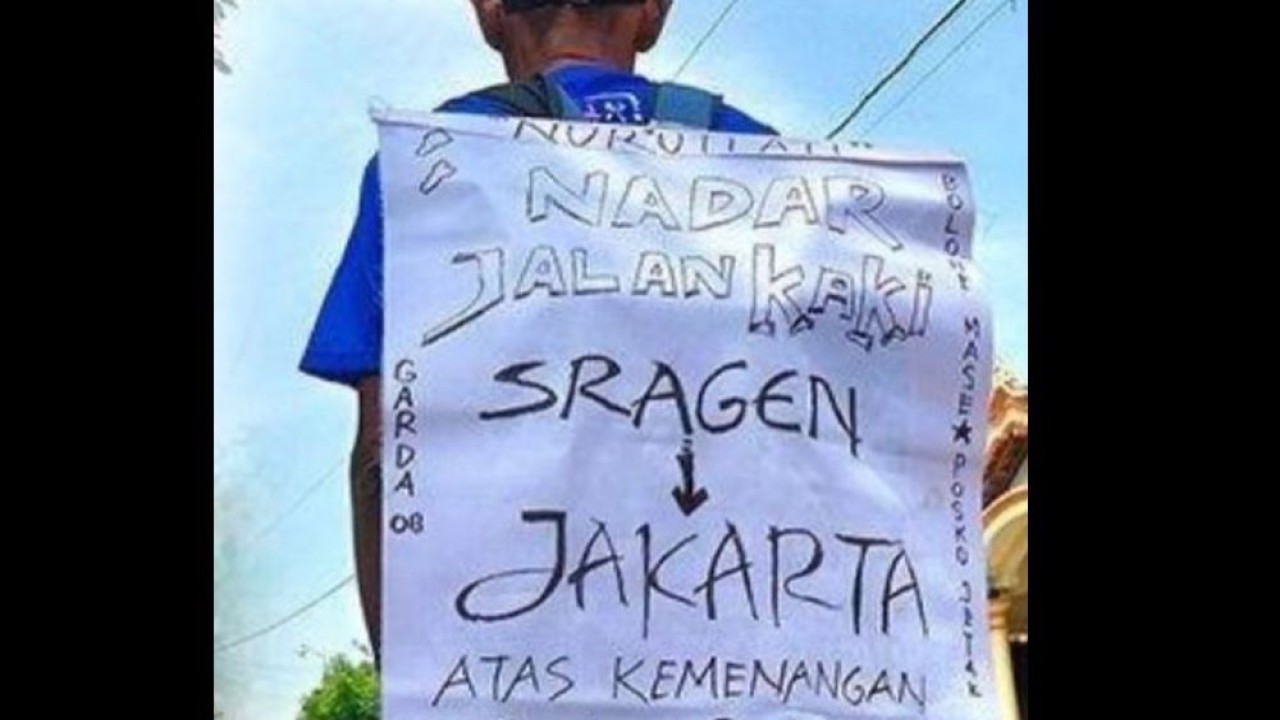 NADAR
JALAN KAKI
SRAGEN
JAKARTA
ATAS KEMENANGAN
GARDA 08
MASE ★ POSKO JETAK